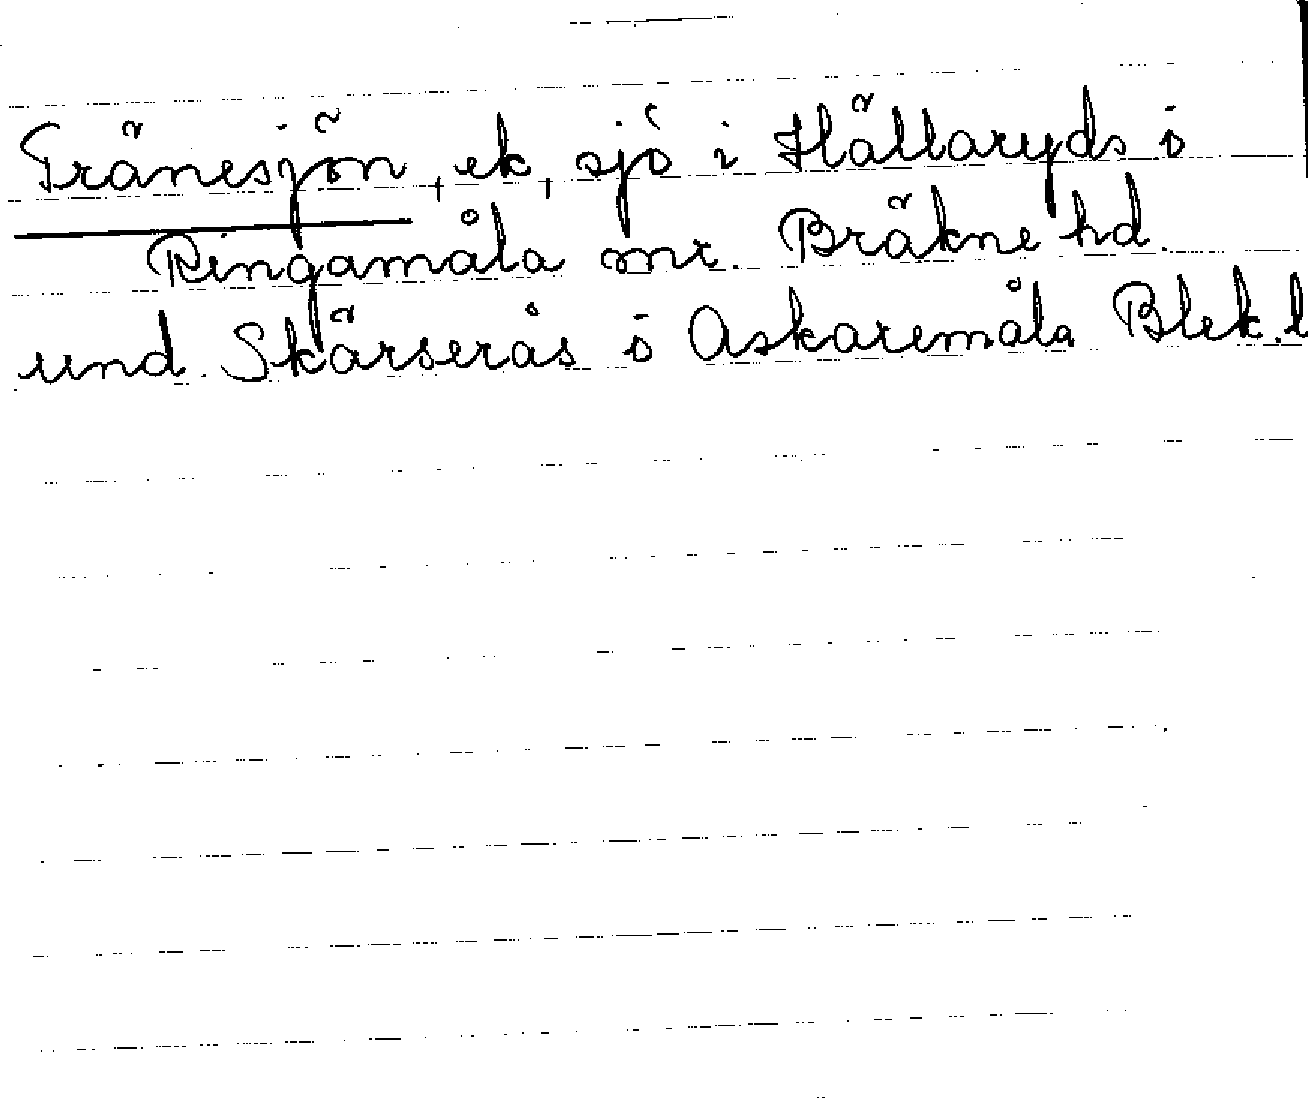 Tränesjön, ek, sjö i Hällaryds o
Ringamåla snr. Bräkne hd.
und. Skärserås o Askaremåla Blek. l